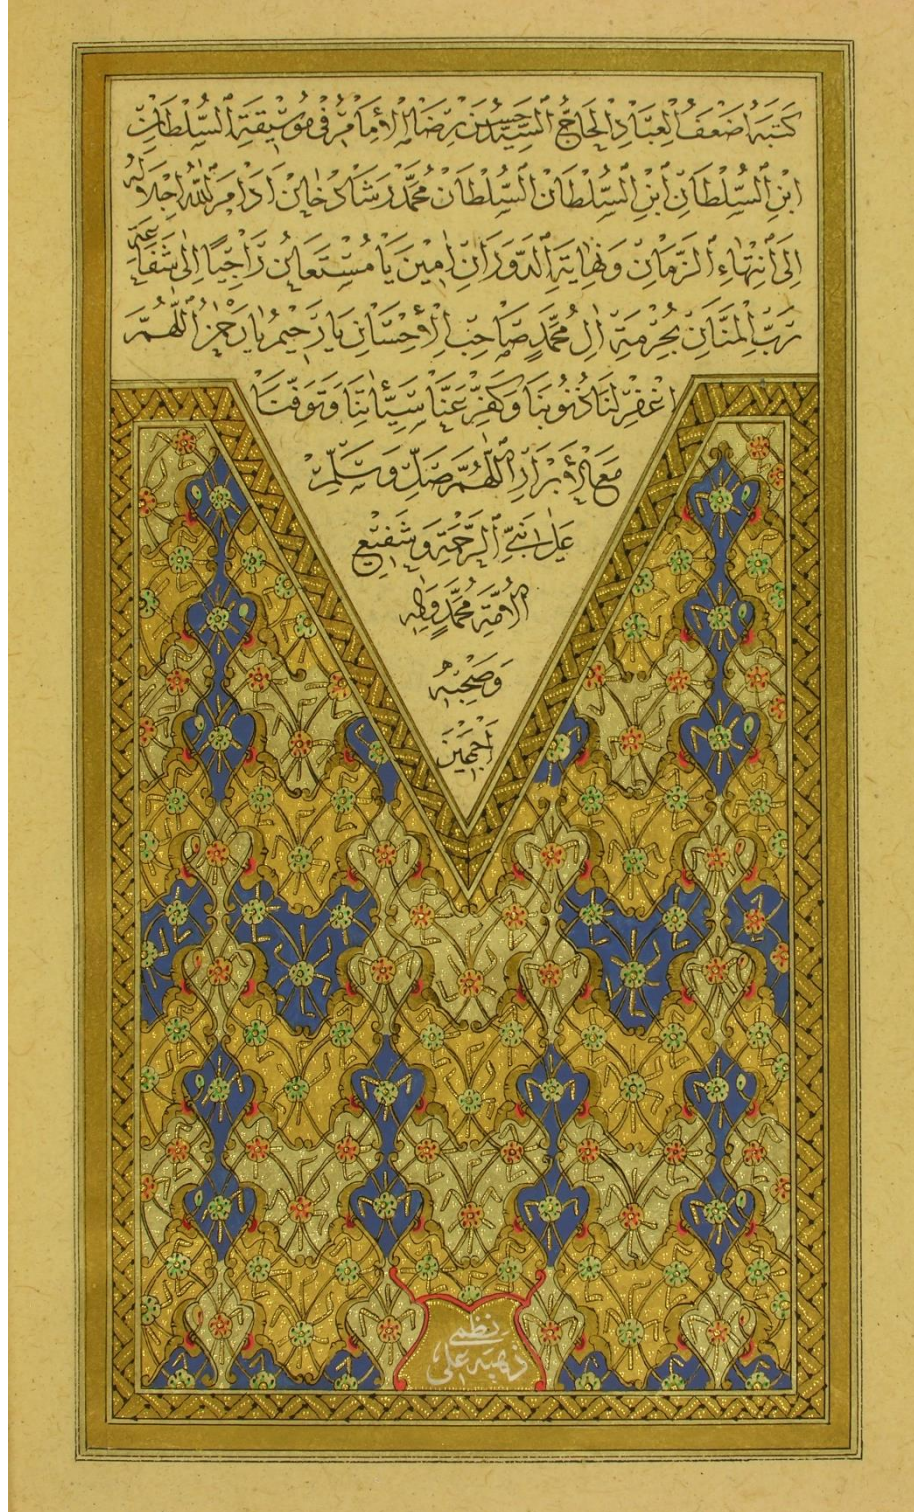 كَتَبَهُ اَضْعَفُ الْعِبَادِ الْحَاجُّ السَّيِّدْ حَسَنْ رِضَا اَلْاِمَامُ فِى مُوسِيقَةِ السُّلْطَانِ
ابْنِ السُّلْطَانِ ابْنِ السُّلْطَانْ السُّلْطَانْ مُحَمَّدْ رَشَادْ خَانْ اَدَامَ اللّٰهُ اِجْلَالَهُ
اِلَى انْتِهَاءِ الزَّمَانِ وَنِهَايَةِ الدَّوَرَانِ اٰمِينَ يَا مُسْتَعَانُ رَاجِيًا اِلٰى شَفَاعَةِ
رَبِّ الْمَنَّانِ بِحُرْمَةِ اٰلِ مُحَمَّدٍ صَاحِبِ الْاِحْسَانِ يَا رَحِيمُ يَا رَحْمٰنُ اَللّٰهُمَّ
اغْفِرْ لَنَا ذُنُوبَنَا وَكَفِّرْ عَنَّا سَيِّئَاتِنَا وَتَوَفَّنَا
مَعَ الْاَبْرَارِ اَللّٰهُمَّ صَلِّ وَسَلِّمْ
عَلٰى نَبِىِّ الرَّحْمَةِ وَشَفِيعِ
الْاُمَّةِ مُحَمَّدٍ وَاٰلِهِ
وَصَحْبِهِ
اَجْمَعِينَ
ذهبه على
نظمى